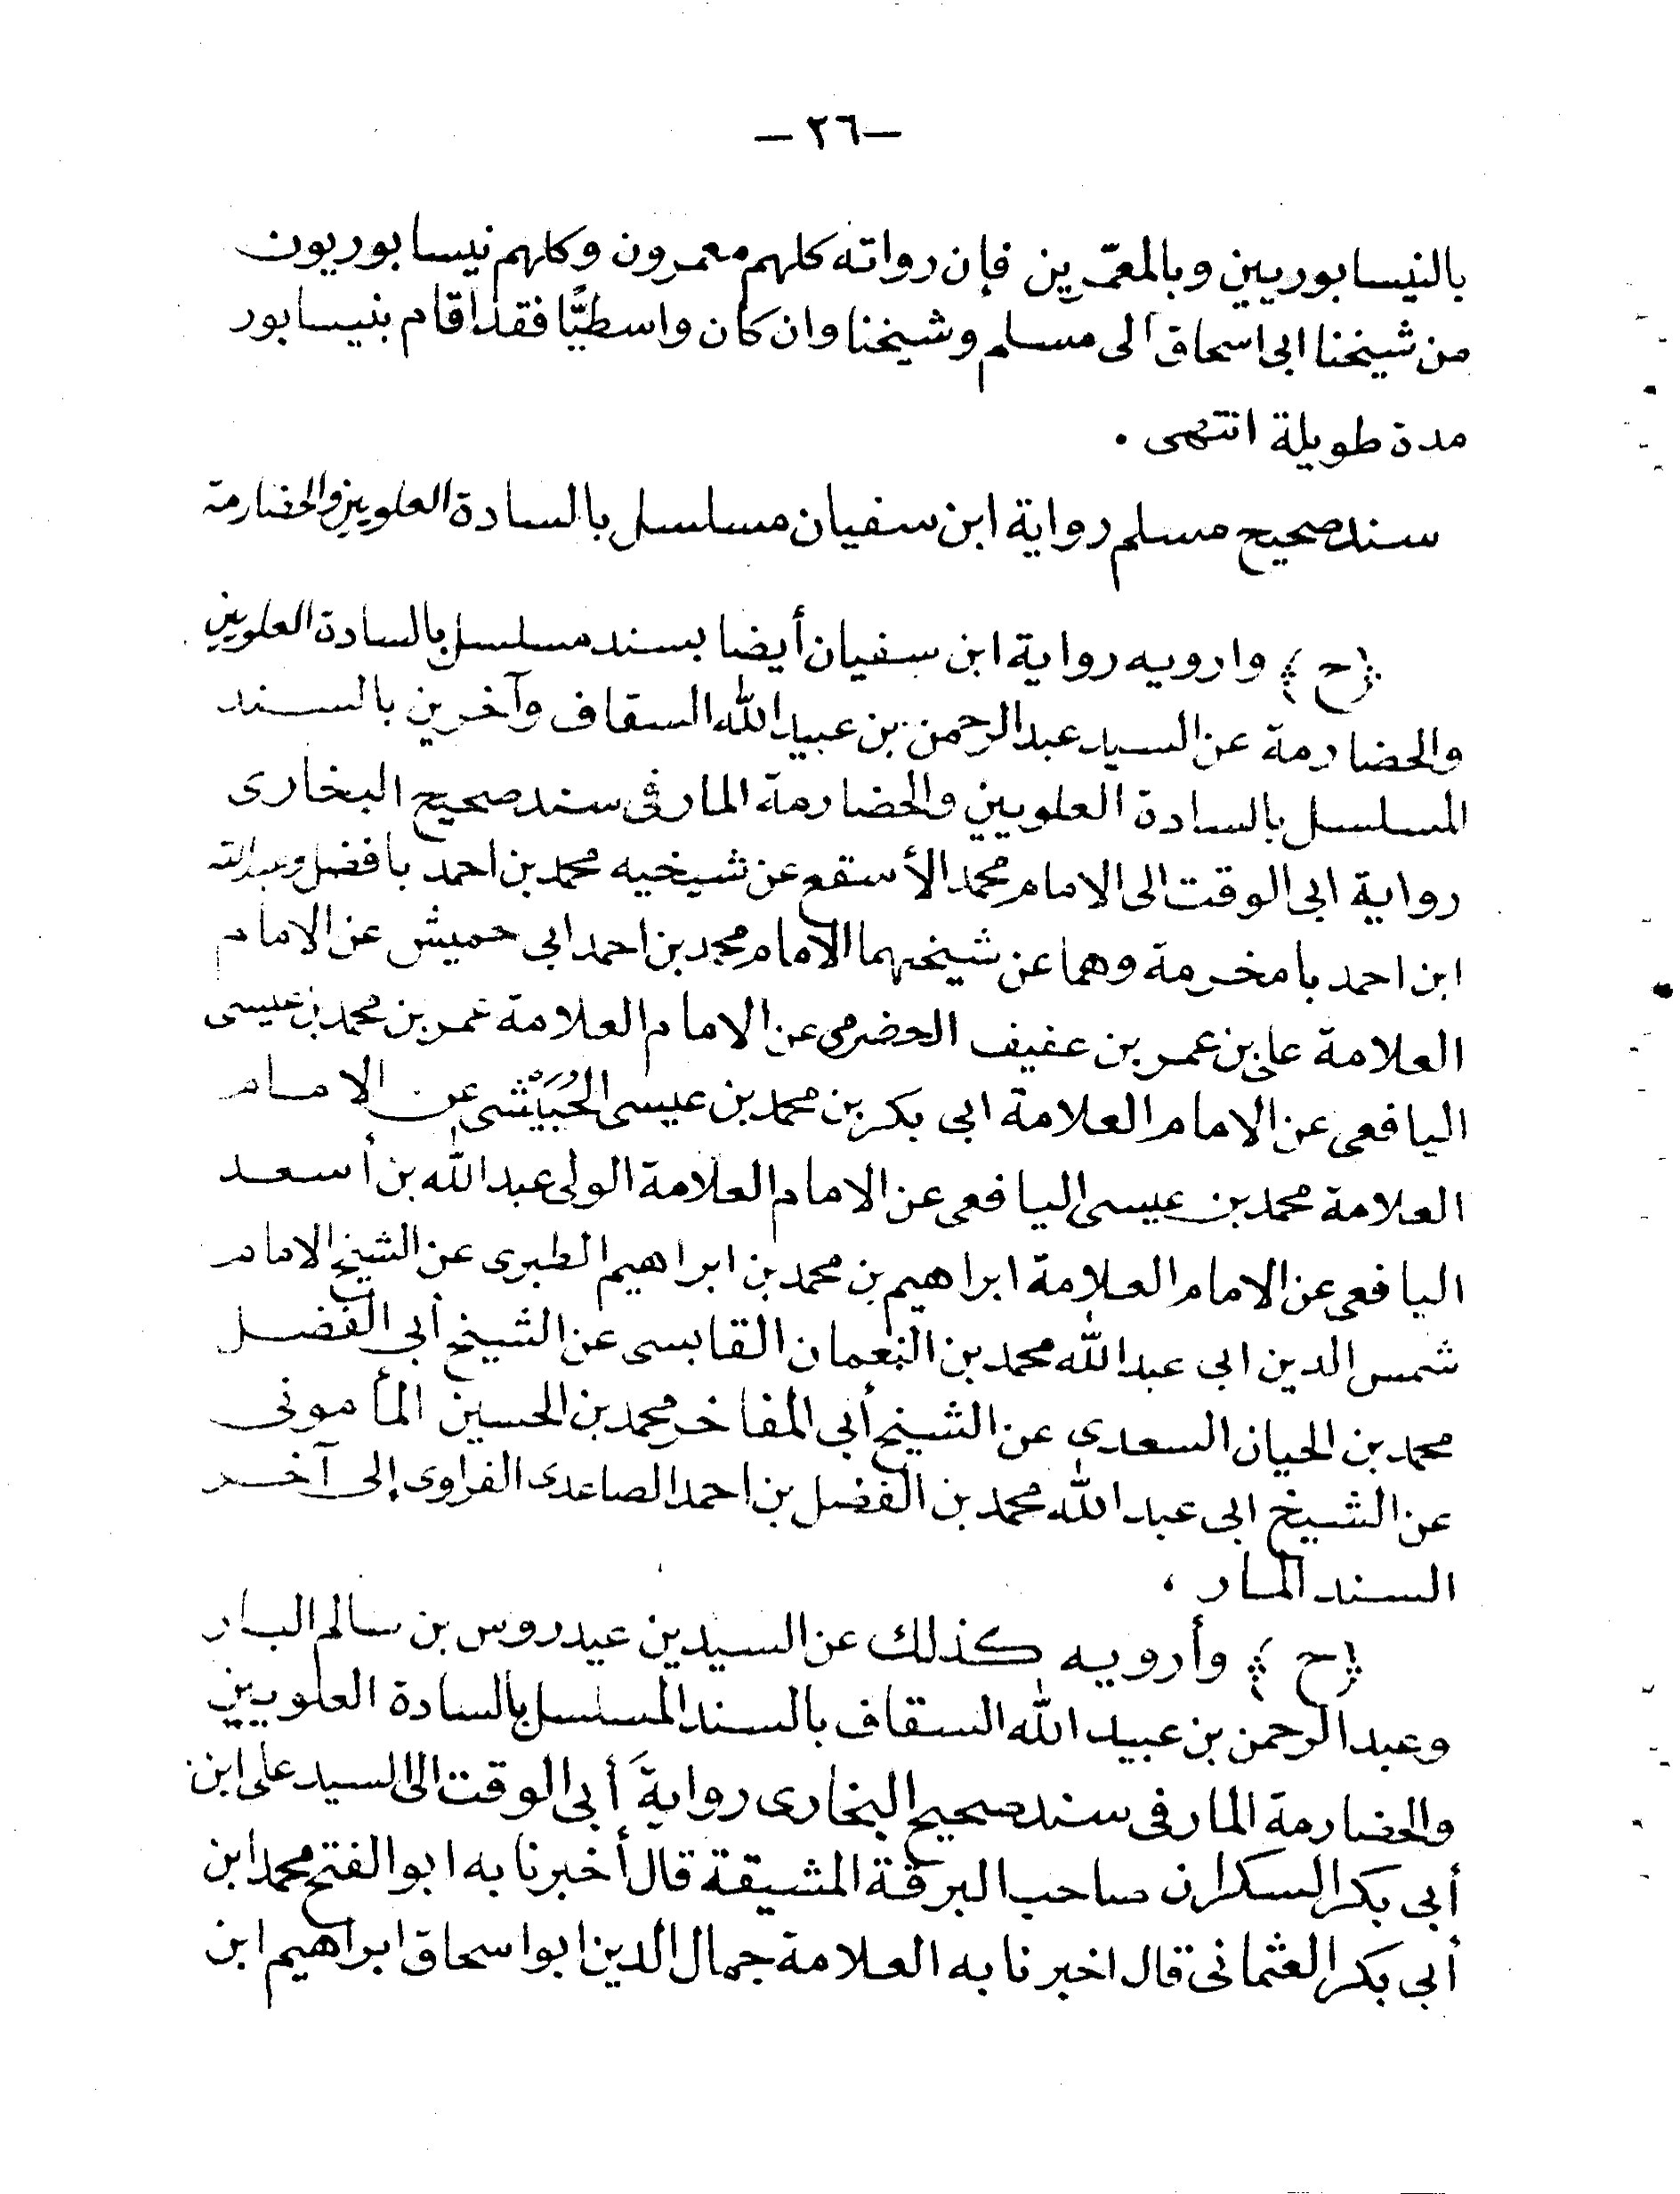 — ٢٦ —
بالنيسابوريين وبالمعمّرين فإن رواته كلهم معمرون وكلهم نيسابوريون
من شيخنا ابى اسحاق الى مسلم وشيخنا وان كان واسطيًّا فقد اقام بنيسابور
مدة طويلة انتهى .
سند صحيح مسلم رواية ابن سفيان مسلسل بالسادة العلويين والحضارمة
﴿ح﴾ وارويه رواية ابن سفيان أيضا بسند مسلسل بالسادة العلويين
والحضارمة عن السيد عبد الرحمن بن عبيد الله السقاف وآخرين بالسند
المسلسل بالسادة العلويين والحضارمة المار فى سند صحيح البخارى
رواية ابى الوقت الى الامام محمد الأسقع عن شيخيه محمد بن احمد بافضل وعبد الله
ابن احمد بامخرمة وهما عن شيخهما الامام محمد بن احمد ابى حميش عن الامام
العلامة على بن عمر بن عفيف الحضرمى عن الامام العلامة عمر بن محمد بن عيسى
اليافعى عن الامام العلامة ابى بكر بن محمد بن عيسى الحُبَيْشى عن الامام
العلامة محمد بن عيسى اليافعى عن الامام العلامة الولى عبد الله بن أسعد
اليافعى عن الامام العلامة ابراهيم بن محمد بن ابراهيم الطبرى عن الشيخ الامام
شمس الدين ابى عبد الله محمد بن النعمان القابسى عن الشيخ أبى الفضل
محمد بن الحيان السعدى عن الشيخ أبى المفاخر محمد بن الحسين المأمونى
عن الشيخ ابى عبد الله محمد بن الفضل بن احمد الصاعدى الفراوى إلى آخر
السند المار ،
﴿ح﴾ وأرويه كذلك عن السيدين عيدروس بن سالم البار
وعبد الرحمن بن عبيد الله السقاف بالسند المسلسل بالسادة العلويين
والحضارمة المار فى سند صحيح البخارى روايةَ أبى الوقت الى السيد على ابن
أبى بكر السكران صاحب البرقة المشيقة قال أخبرنا به ابو الفتح محمد ابن
أبى بكر العثمانى قال اخبرنا به العلامة جمال الدين ابو اسحاق ابراهيم ابن